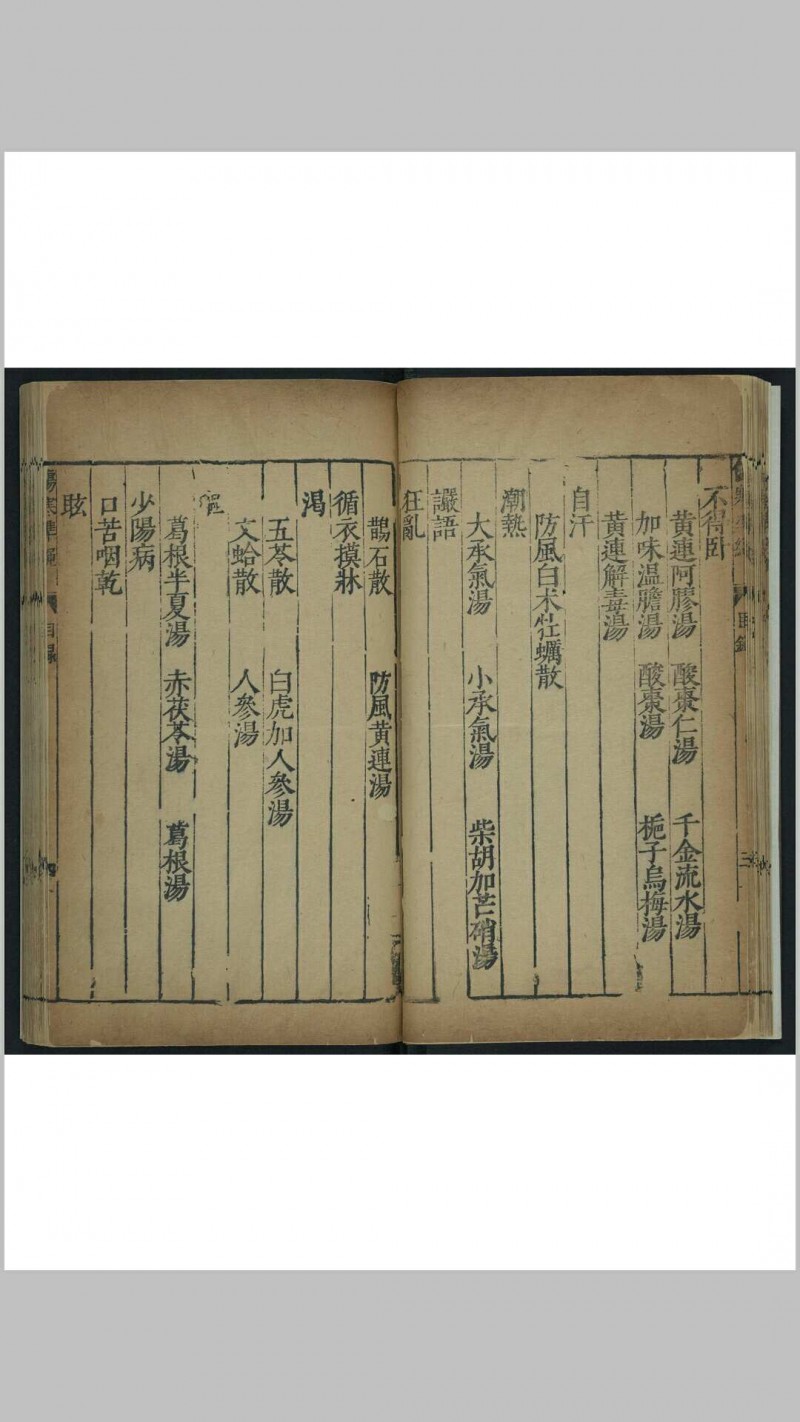 不得卧
黃連阿膠湯　酸棗仁湯　千金流水湯
加味温膽湯　酸棗湯　梔子烏梅湯
黃連解毒湯
自汗
防風白术牡蠣散
潮熱
大承氣湯　小承氣湯　柴胡加芒硝湯
讝語
狂亂
鵲石散　防風黃連湯
循衣摸牀
渴
五苓散　白虎加人參湯
文蛤散　人參湯
葛根半夏湯　赤茯苓湯　葛根湯
少陽病
口苦咽乾
目錄